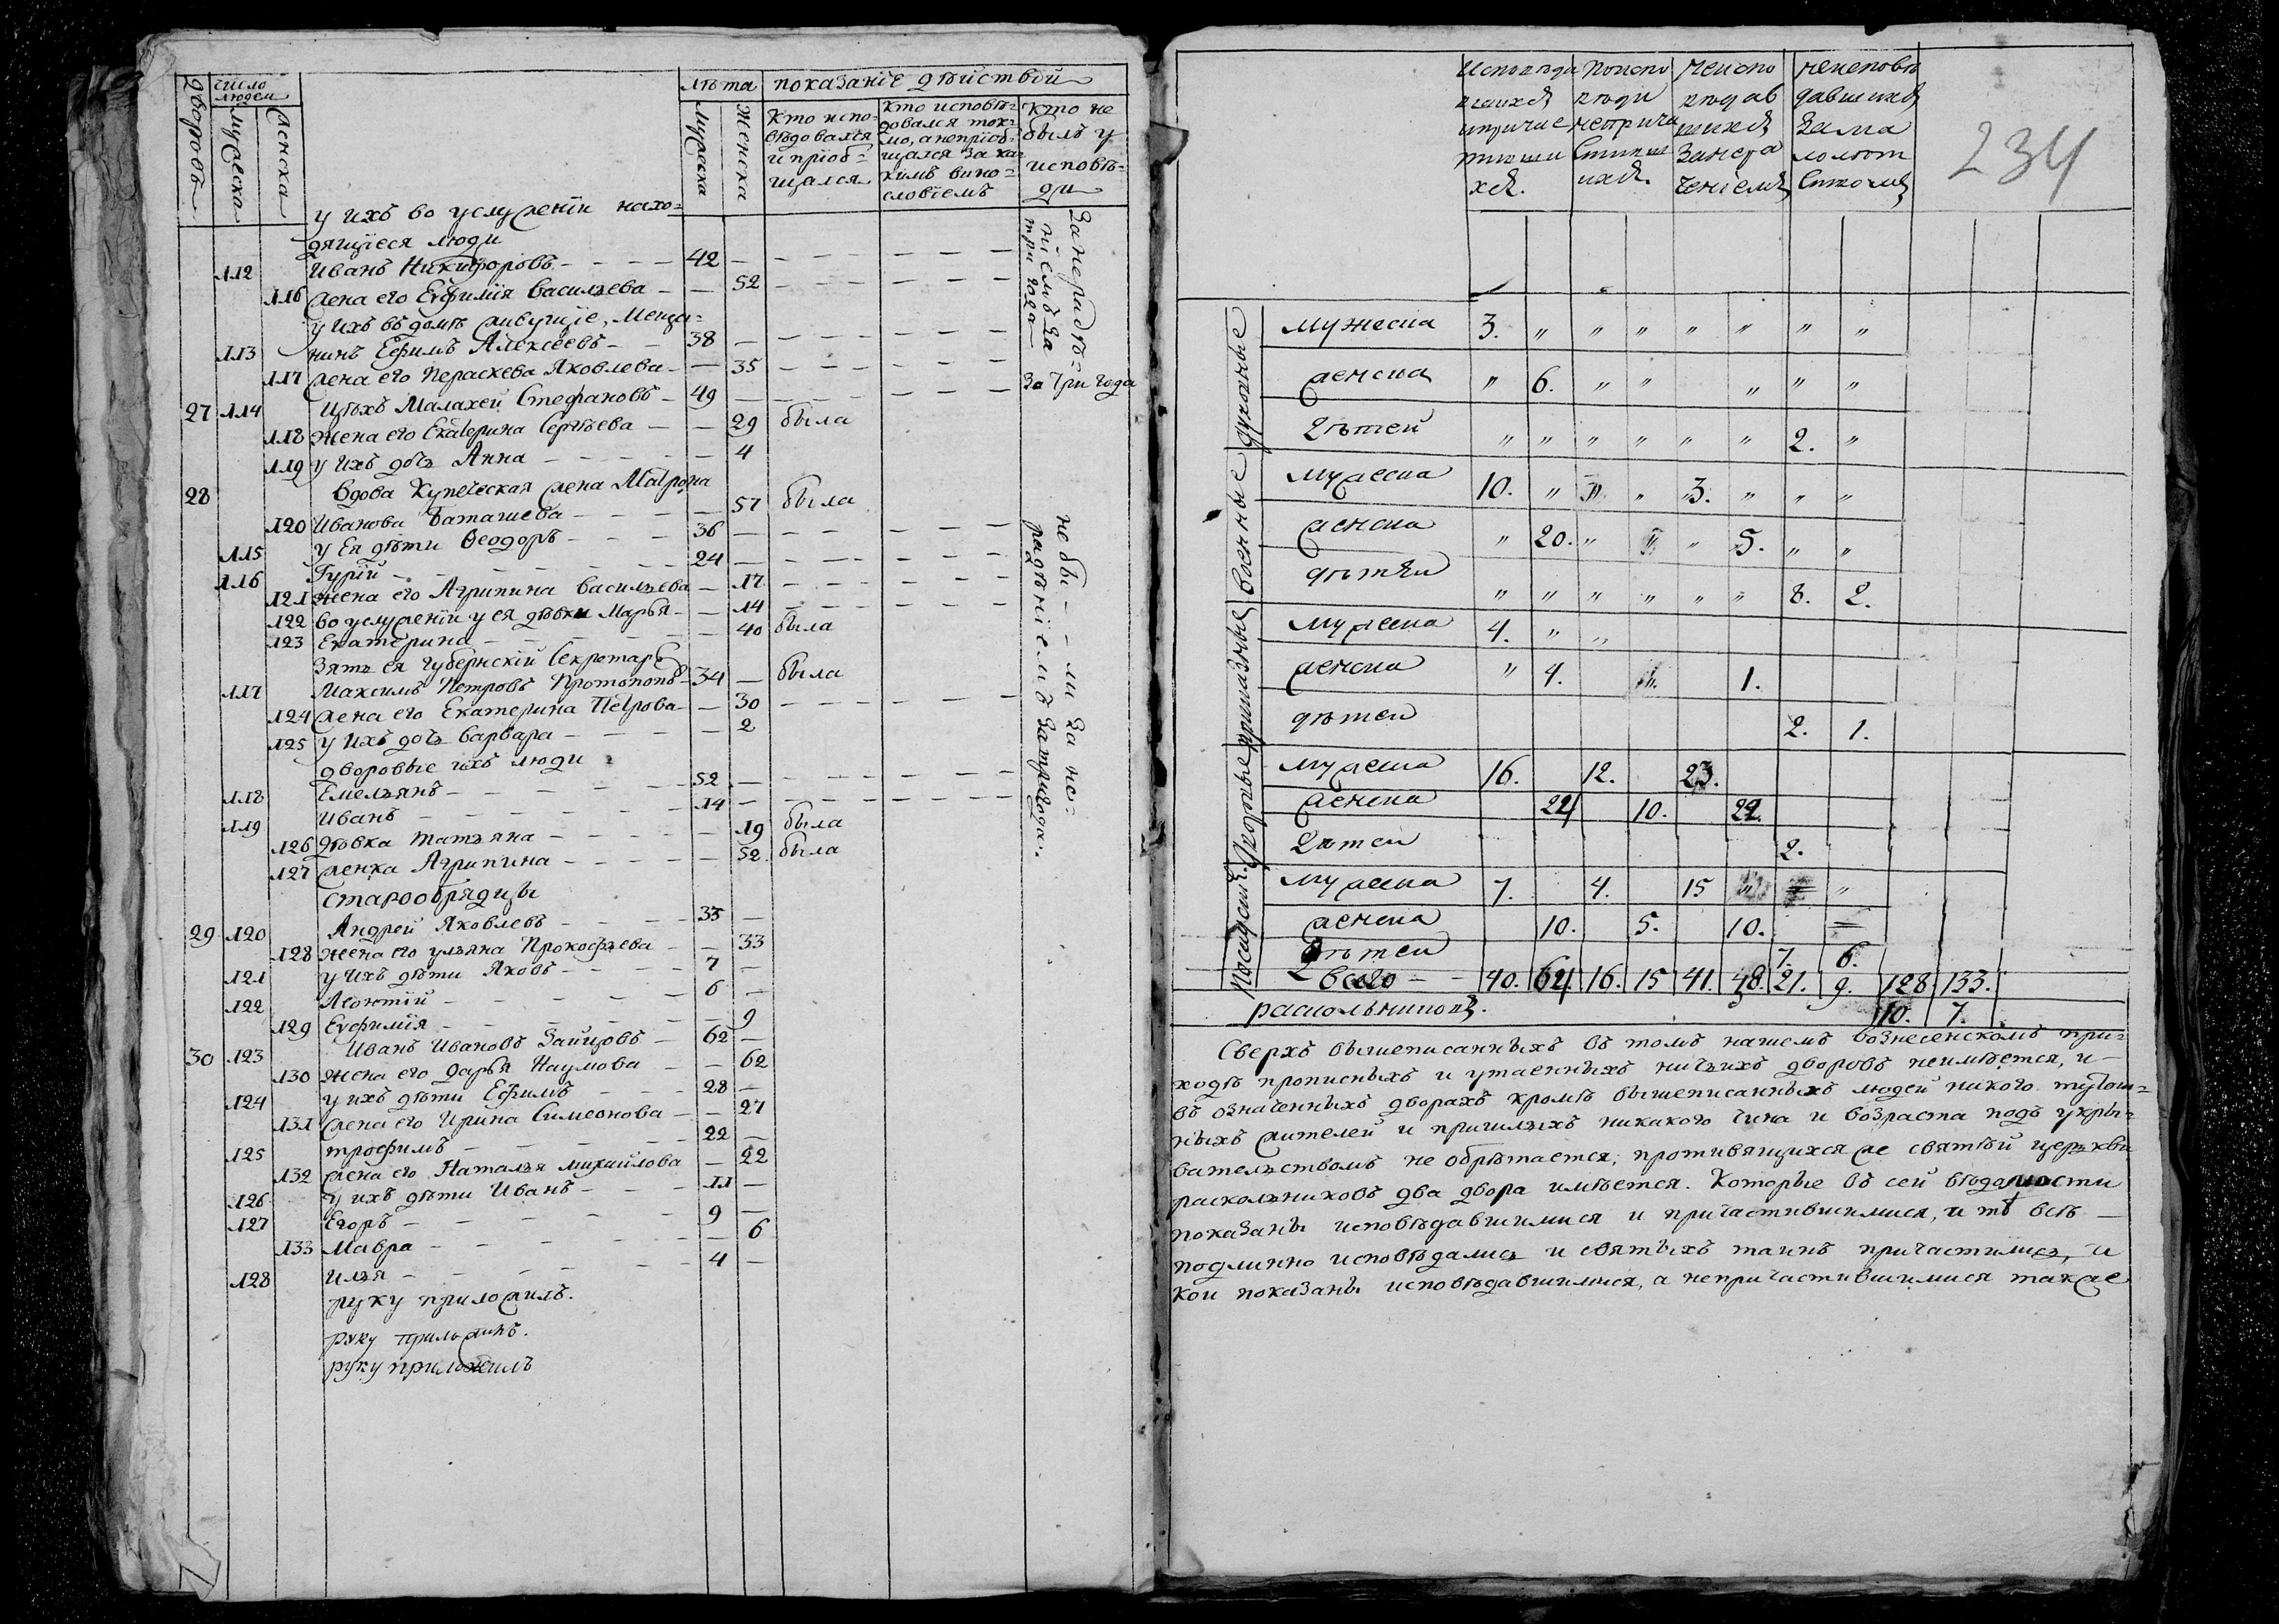 дворовъ
число людей
мужеска
женска
лѣта
показанїе дѣйствъ
мужеска
женска
кто испо-
вѣдовался
и прїоб-
щался
кто исповѣ-
довался ток-
мо, а непрїоб-
щался за ка-
кимъ вино-
словїемъ
кто не
былъ у
исповѣ-
ди
у ихъ во услуженїи нахо-
дящїеся люди
112 Иванъ Никифоровъ 42
116 жена его Еѵфимїя Васильева 52
у ихъ въ домѣ живущїе, Меща-
113 нинъ Ефимъ Алексѣевъ 38
117 жена его Пераскева Яковлева 35
за нерадѣ-
нїемъ за
три года
27 114 Цѣхъ Малахей Стефановъ 49 за три года
118 жена его Екатерина Сергѣева 29 была
119 у ихъ дочь Анна 4
28 Вдова Купеческая жена Матрона
120 Иванова Баташева 57 была
115 у Ея дѣти Ѳеодоръ 36
116 Гурїй 24
121 жена его Агрипина Васильева 17
122 во услуженїи у ея дѣвки Марья 14
123 Екатерина 40 была
Зять ея губернскїй Секретарь
117 Максимъ Петровъ Протопоповъ 34 была
124 жена его Екатерина Петрова 30
125 у ихъ дочь Варвара 2
дворовые ихъ люди
118 Емельянъ 52
119 Иванъ 14
126 дѣвка Татьяна 19 была
127 женка Агрипина 52 была
не бы - - ли за не-
радѣнїемъ за три года.
старообрядцы
29 120 Андрей Яковлевъ 35
128 жена его Ульяна Прокофьева 33
121 у ихъ дѣти Яковъ 7
122 Леонтїй 6
129 Еѵфимїя 9
30 123 Иванъ Ивановъ Зайцовъ 62
130 жена его Дарья Наумова 62
124 у ихъ дѣти Ефимъ 28
131 жена его Ирина Симеонова 27
125 Трофимъ 22
132 жена его Наталья Михайлова 22
126 у ихъ дѣти Иванъ 11
127 Егоръ 9
133 Мавра 6
128 Илья 4
руку приложилъ.
руку приложилъ.
руку приложилъ
234
духовные
мужеска 3. " " " " " " "
женска " 6. " " " " "
дѣтей " " " " " " 2. "
военные
мужеска 10. " " 3. " " "
женска " 20. " " 5. " "
дѣтей " " " " " " 8. 2.
приказные
мужеска 4. " "
женска " 4. 1.
дѣтей 2. 1.
мужеска 16. 12. 23.
женска 24 10. 24.
дѣтей 2.
мужеска 7. 4. 15
женска 10. 5. 10.
дѣтей 7. 6.
всего 40. 64. 16. 15 41. 48. 21. 9. 128. 133.
раскольниковъ. 10. 7.
Сверхъ вышеписанныхъ въ томъ нашемъ вознесенскомъ при-
ходѣ прописныхъ и утаенныхъ ничьихъ дворовъ неимѣется, и
въ означенныхъ дворахъ кромѣ вышеписанныхъ людей никого тутош-
ныхъ жителей и пришлыхъ никакого чина и возраста подъ укры-
вательствомъ не обрѣтается; противящихся же святѣй церькви
раскольниковъ два двора имѣется. Которые въ сей вѣдомости
показаны исповѣдавшимися и причастившимися, и тѣ всѣ
подлинно исповѣдались и святыхъ таинъ причастились, и
кои показаны исповѣдавшимися, а непричастившимися также